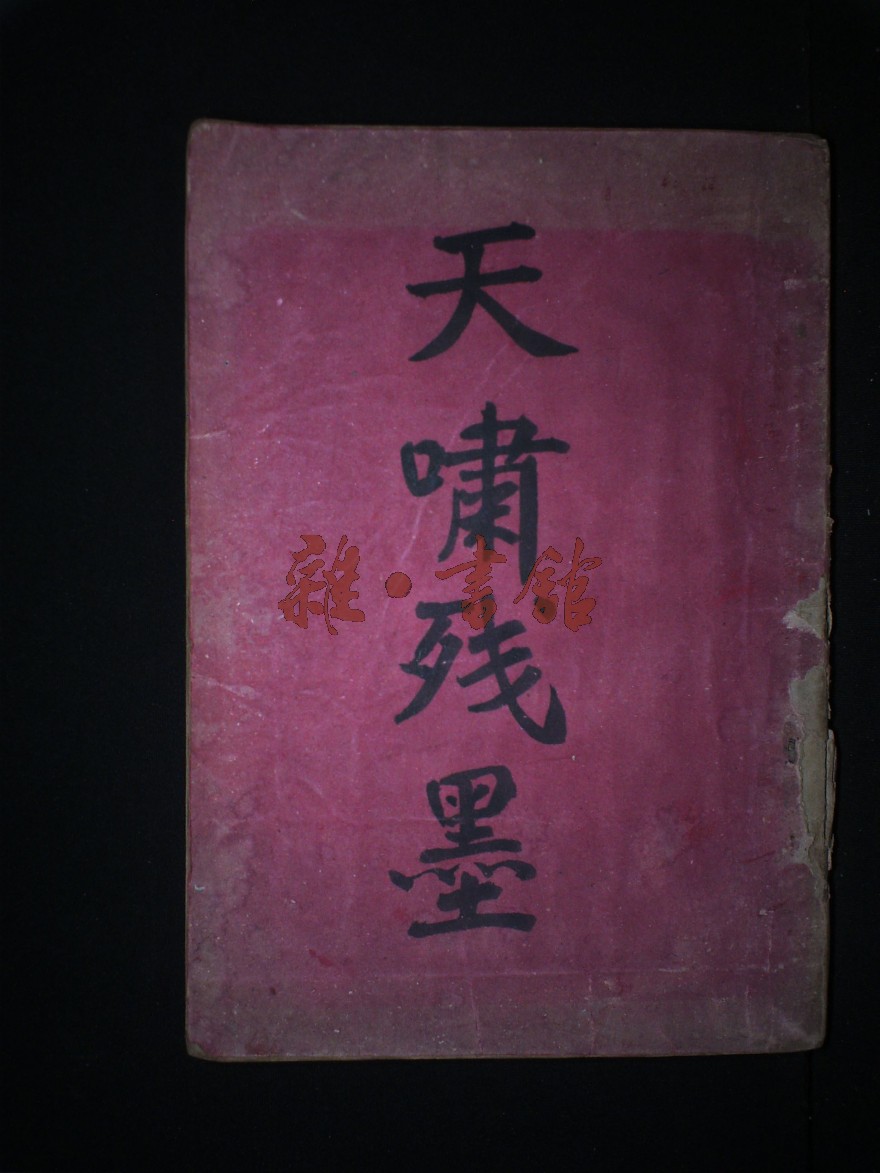 天嘯残墨
雜·書館